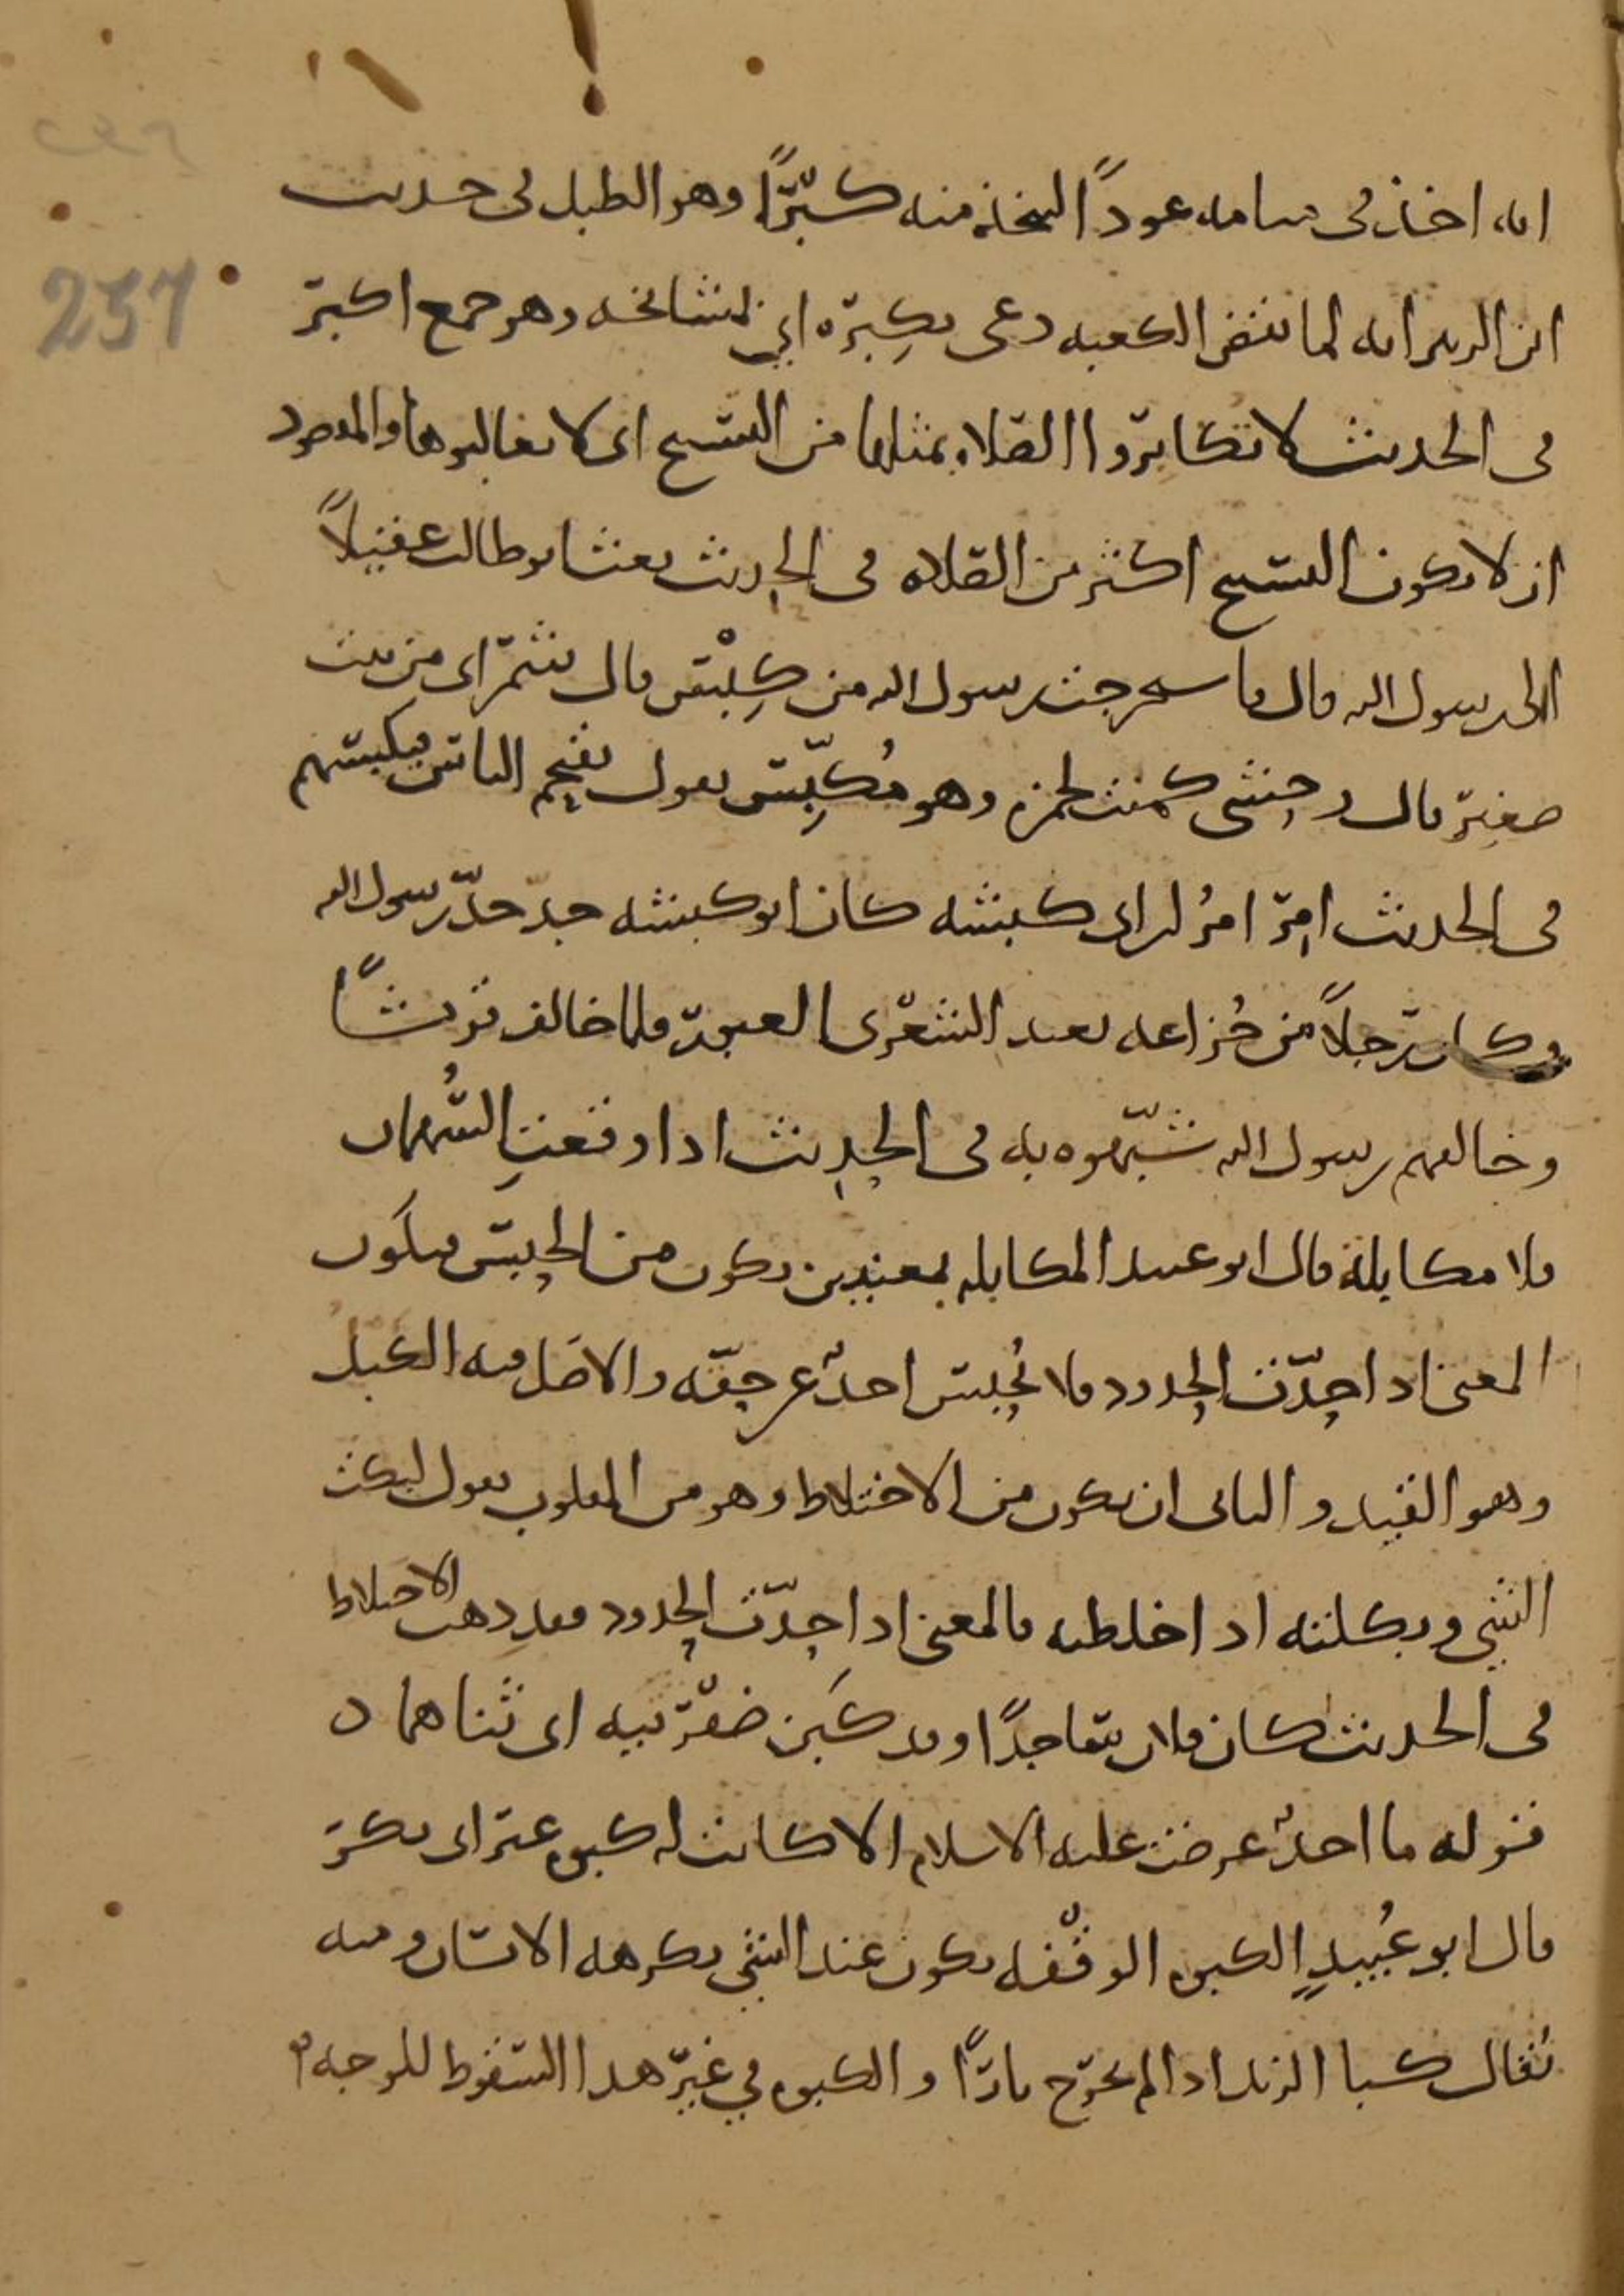 انه اخذ في منامه عودًا ليتخذ منه كَبَرًا وهو الطبل في حديث
ابن الزبير انه لما نقض الكعبه دعى بكِبَره اي بمشايخه وهو جمع اكبر
في الحديث لا تكابروا الصلاه بمثلها من التسبيح اى لا تغالبوها والمقصود
ان لا يكون التسبيح اكثر من الصلاه في الحديث بعث ابو طالب عقيلًا
الى رسول الله قال فاستخرجت رسول الله من كِبْس قال شمر اى من بيت
صغير قال وحشى كمنت لحمزه وهو مُكَبِّس يعول يقتحم الناس فيكبسهم
في الحديث امِرَ امرُ ابن ابى كبشه كان ابو كبشه جد جدّ رسول الله
وكان رجلًا من خُزاعه يعبد الشعْرى العبور فلما خالف قريشًا
وخالفهم رسول الله شبّهوه به في الحديث اذا وقعتِ السُّهمان
فلا مكابلة قال ابو عبيد المكابله بمعنيين يكون من الحبس فيكون
المعنى اذا حُدّت الحدود فلا يُحبس احدٌ عن حقّه والاصل فيه الكبل
وهو القيد والثانى ان يكون من الاختلاط وهو من المقلوب يقول لبكت
الشي وبكلته اذا خلطته فالمعنى اذا حدّت الحدود فقد ذهب الاختلاط
في الحديث كان فلان ساجدًا وقد كَبَن ضفْرتيه اى ثناهما ن
قوله ما احدٌ عرضت عليه الاسلام الا كانت له كبوه عنر اى بكر
قال ابو عُبيدٍ الكبوه الوقْفه يكون عند الشي يكرهه الانسان ومنه
يُقال كبا الزند اذا لم يخرج نارًا والكبوه في غير هذا السقوط للوجه
237